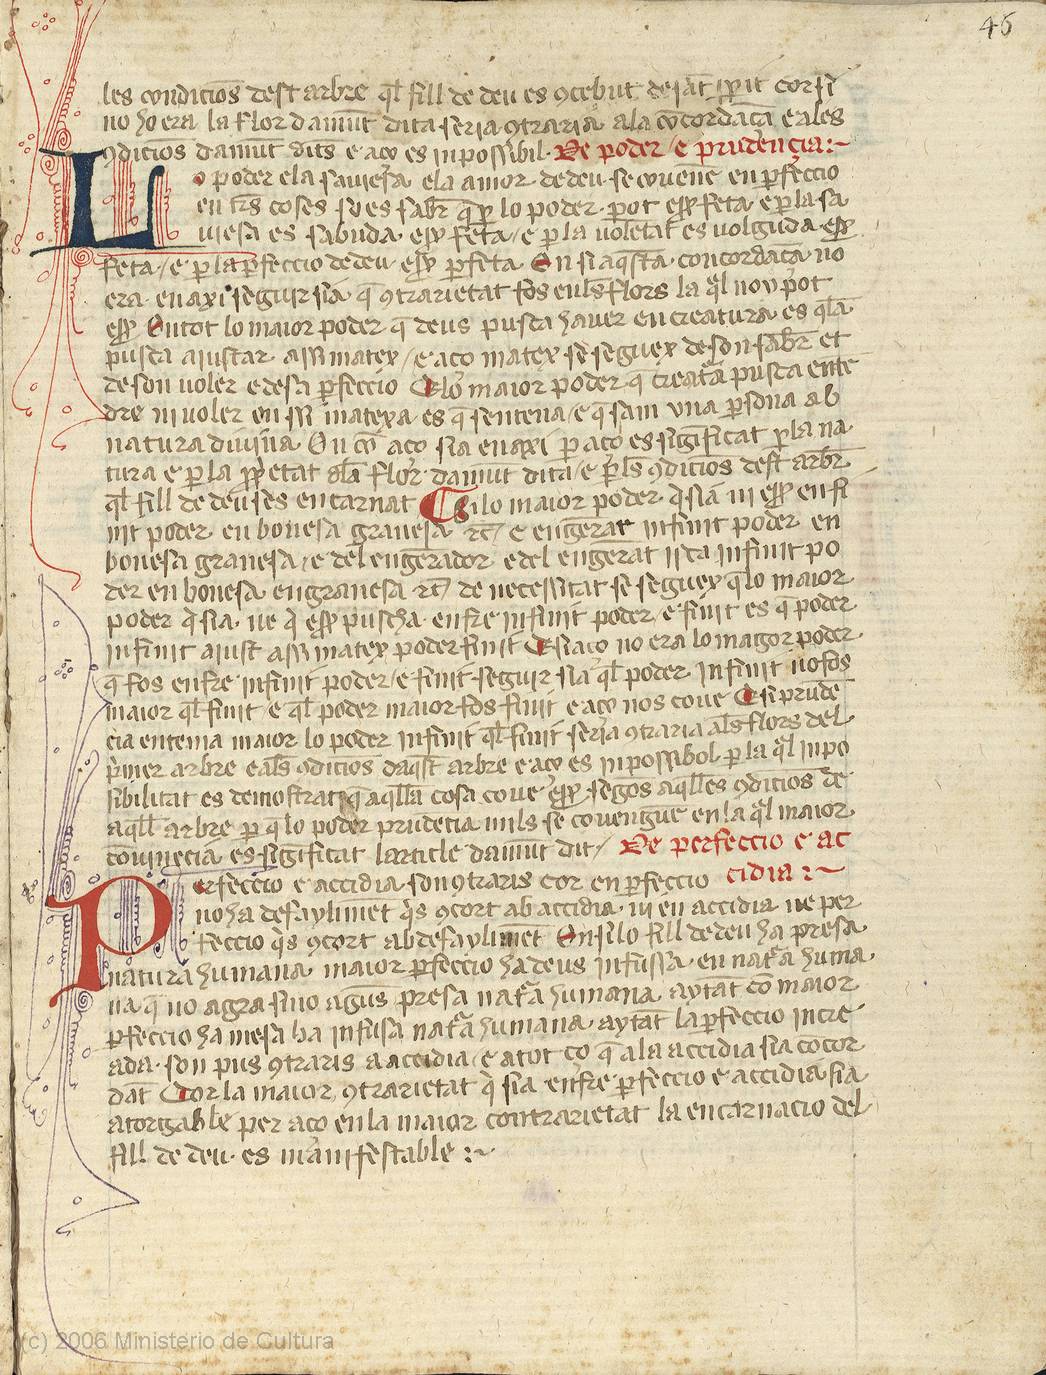 46
les condicios dest arbre ql fill de deu es ɔcebut de sāt spirit cor si
no ho era la flor damūt dita seria ɔtraria ala cōcordāça e ales
ɔdicios damūt dits e aço es inpossibil. De poder e prudencia:~
Lo poder e la saviesa e la amor de deu se covene en pfeccio
en
viesa es sabuda eser feta / e p la volētat es volguda eser
feta / e p la pfeccio de deu eser pfeta. On si aqsta concordāça no
era en axi seguir sia q ɔtrarietat fos en ls flors la ql no pot
eser Entot lo maior poder q deus pusca haver en creatura es qla
pusca aiustar assi matex / e aço matex se seguex de son sabr et
de son voler e de sa pfeccio E lo maior poder q creatᵃa pusca enten
dre ni voler en si matexa es q sentena / e q sam una psona ab
natura divina. On cō aço sia en axi p aço es significat p la na
tura e p la ppietat dla flor damūt dita / e p ls ɔdicios dest arbr
ql fill de deu ses encarnat E si lo maior poder q sia ni eser en fi
nit poder en bonesa granesa &c / e engenerat infinit poder en
bonesa granesa / e del engenrador e del engenrat ista infinit po
der en bonesa en granesa &c de necessitat se seguex q lo maior
poder q sia ne q eser puscha enfre infinit poder e finit es q poder
infinit aiust assi matex poder finit E si aço no era lo magor poder
q fos enfre infinit poder / e finit seguir sia ql poder infinit no fos
maior ql finit / e ql poder maior fos finit e aço nos cove E si prudē
cia entenia maior lo poder infinit ql finit seria ɔtraria als flors del
primer arbre e als ɔdicios daqst arbre e aço es inpossibol p la ql inpo
sibilitat es demostrat q aqlla cosa cove eser segons aqlles ɔdicios de
aqll arbre p q lo poder prudēcia mils se covengue en la ql maior
covinēcia es significat larticle damūt dit / De perfeccio e ac
cidia:~
Perfeccio e accidia son ɔtraris cor en pfeccio
no ha defaylimēt qs ɔcort ab accidia ni en accidia ne per
feccio qs ɔcort ab defaylimēt On si lo fill de deu ha presa
natura humana maior pfeccio ha deus infussa en natᵃa huma
na q no agra si no agues presa natᵃa humana. aytāt com maior
pfeccio ha mesa ha infusa natᵃa humana. aytāt la pfeccio incre
ada son pus ɔtraris a accidia / e a tot ço q a la accidia sia cōcor
dāt Cor la maior ɔtrarietat q sia enfre pfeccio e accidia sia
atorgable per aço en la maior contrarietat la encarnacio del
fill de deu es manifestable :~
(c) 2006 Ministerio de Cultura